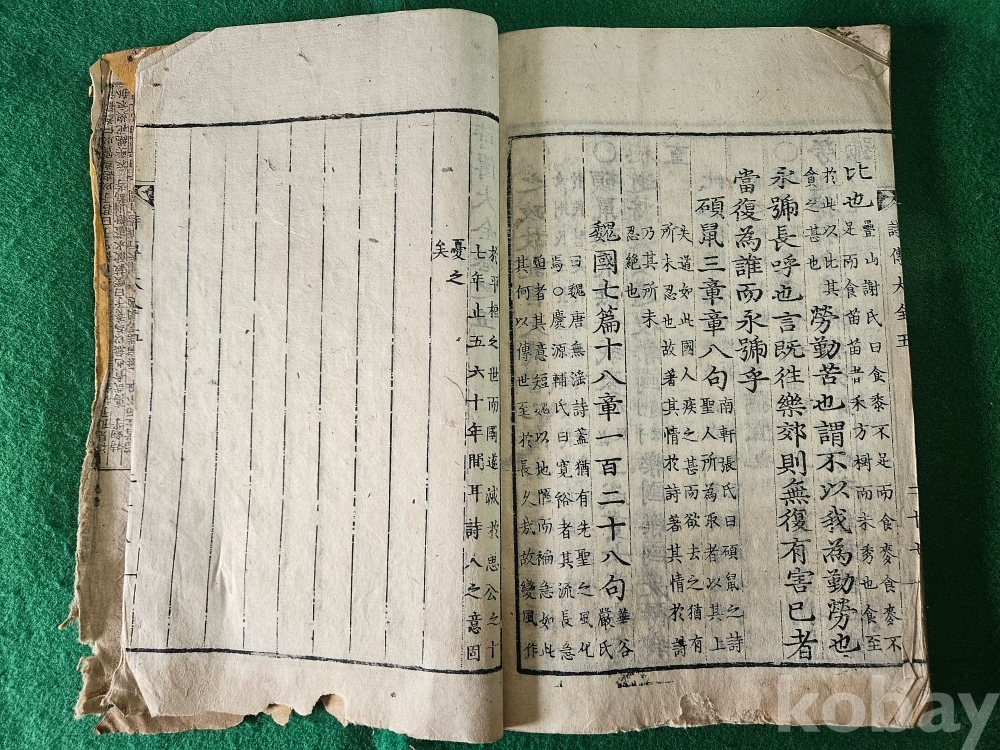 比也
疊山謝氏曰食黍不足而食麥食麥不
足而食苗苗者禾方樹而未秀也食至
於此以比其
貪之甚也
勞勤苦也謂不以我為勤勞也
永號長呼也言既往樂郊則無復有害已者
當復為誰而永號乎
碩鼠三章章八句
南軒張氏曰碩鼠之詩
聖人所為取者以其上
失道如此國人疾之甚而欲去之猶有
所未忍也故著其情於詩著其情於詩
乃其所未
忍絶也
魏國七篇十八章一百二十八句
華谷
嚴氏
曰魏唐無淫詩蓋猶有先聖之風化
焉○慶源輔氏曰寛裕者其流長急
迫者其意短魏以地陿而褊急如此
其何以傳世至於長久哉故變風作
於平桓之世而國遂滅於惠公之十
七年止五六十年間耳詩人之意固
憂之
矣
詩傳大全五
二十七
kobay